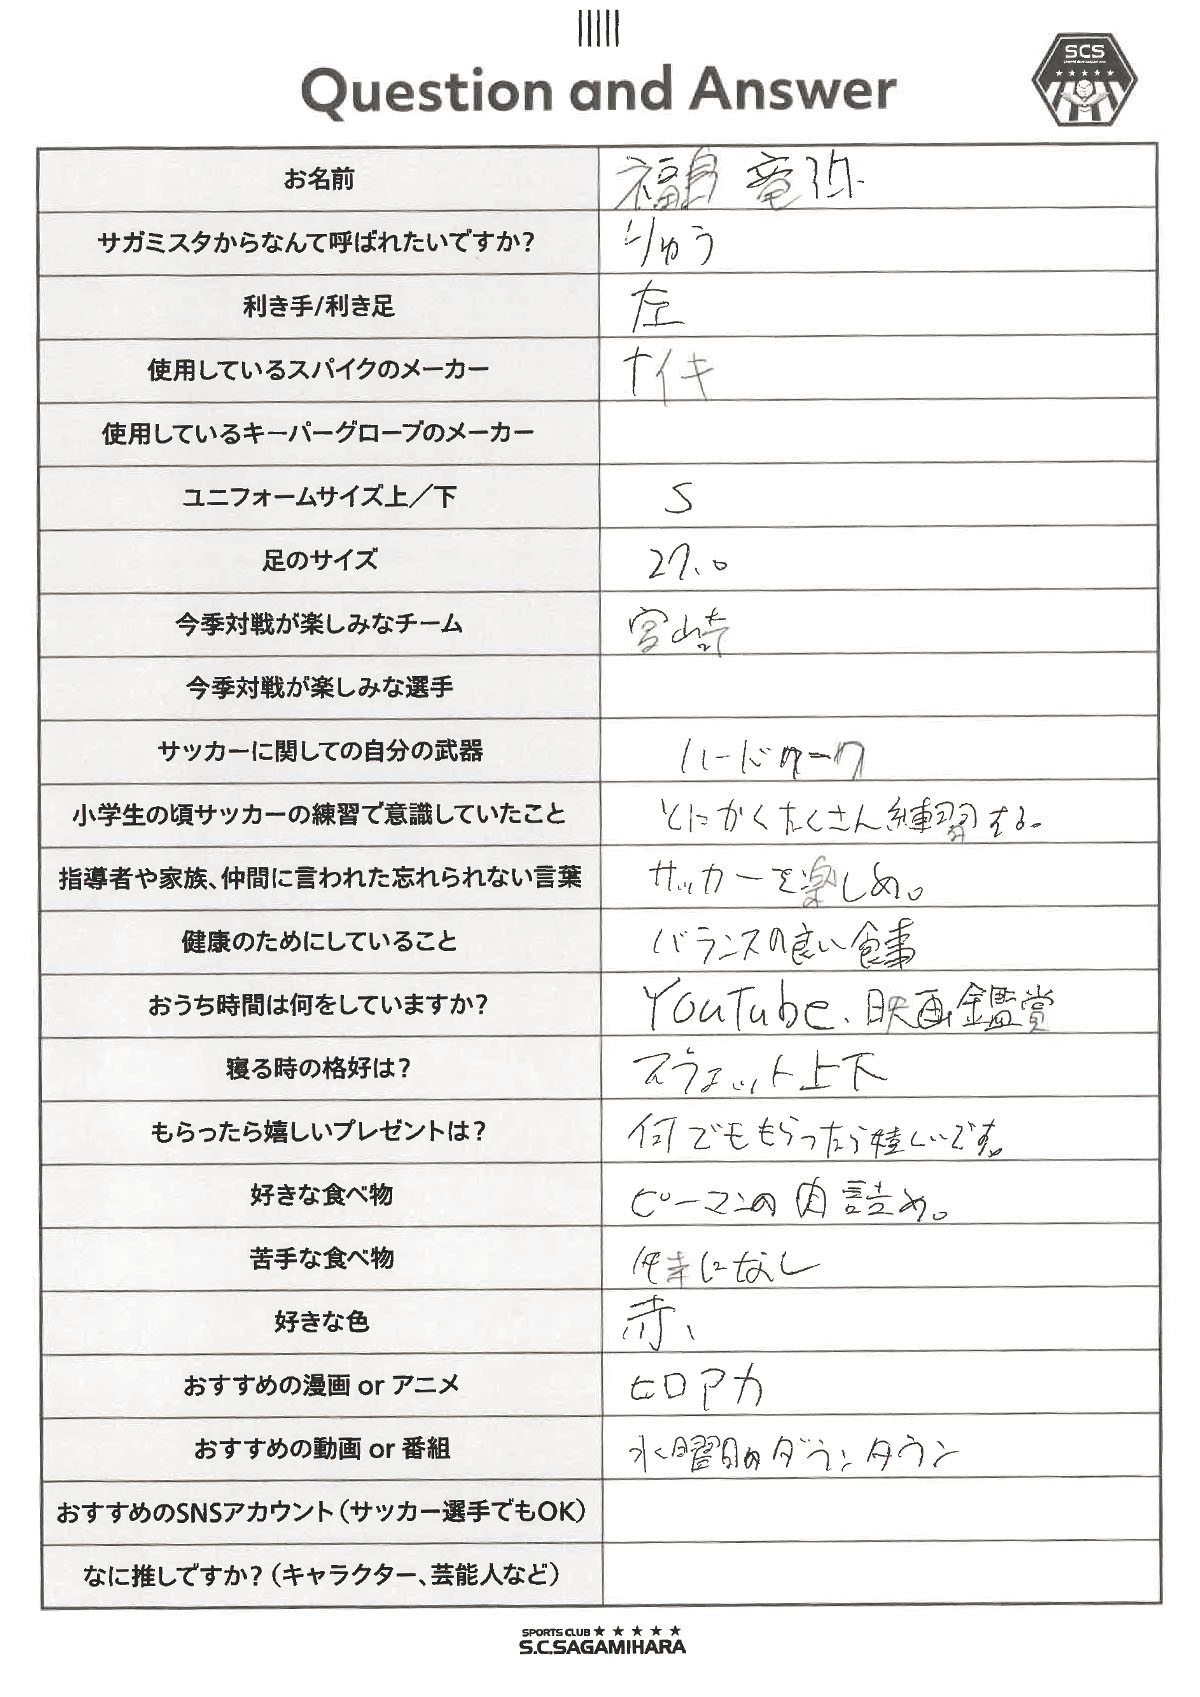 Question and Answer
SCS
お名前 福島 竜弥
サガミスタからなんて呼ばれたいですか？ りゅう
利き手/利き足 左
使用しているスパイクのメーカー ナイキ
使用しているキーパーグローブのメーカー
ユニフォームサイズ上／下 S
足のサイズ 27.0
今季対戦が楽しみなチーム 宮崎
今季対戦が楽しみな選手
サッカーに関しての自分の武器 ハードワーク
小学生の頃サッカーの練習で意識していたこと とにかくたくさん練習する。
指導者や家族、仲間に言われた忘れられない言葉 サッカーを楽しめ。
健康のためにしていること バランスの良い食事
おうち時間は何をしていますか？ YouTube、映画鑑賞
寝る時の格好は？ スウェット上下
もらったら嬉しいプレゼントは？ 何でももらったら嬉しいです。
好きな食べ物 ピーマンの肉詰め。
苦手な食べ物 特になし
好きな色 赤、
おすすめの漫画 or アニメ ヒロアカ
おすすめの動画 or 番組 水曜日のダウンタウン
おすすめのSNSアカウント（サッカー選手でもOK）
なに推しですか？（キャラクター、芸能人など）
SPORTS CLUB ★ ★ ★ ★ ★
S.C.SAGAMIHARA